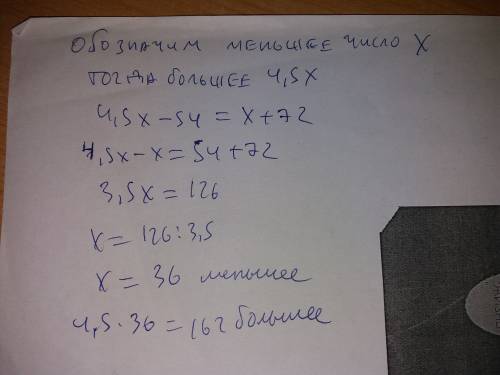 Обозначим меньшее число x
тогда большее 4,5x
4,5x-54=x+72
4,5x-x=54+72
3,5x=126
x=126:3,5
x=36 меньшее
4,5·36=162 большее